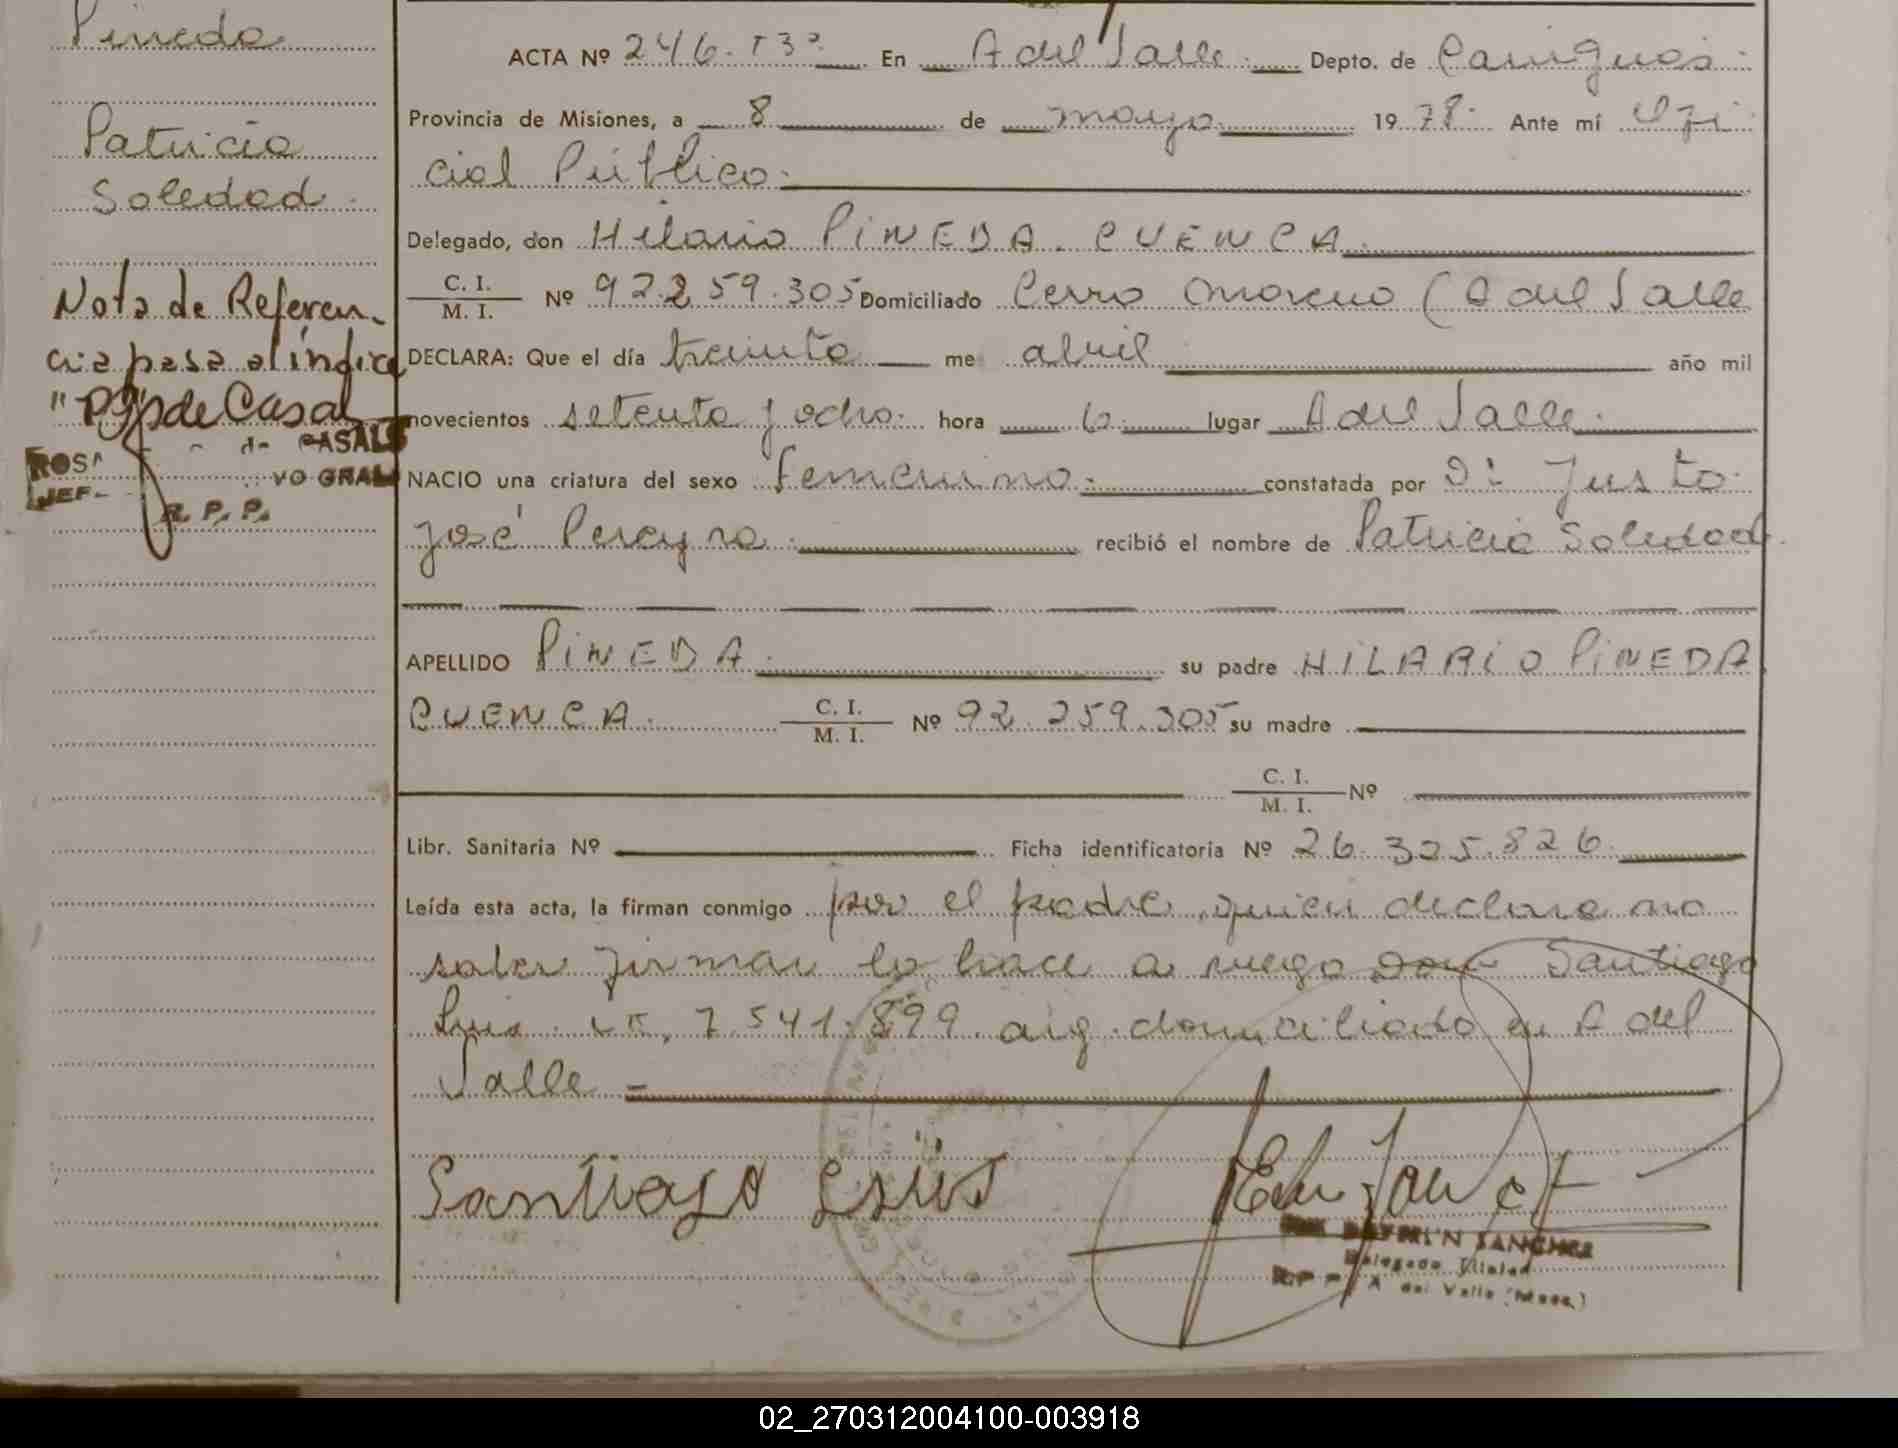 Pineda
Patricia
Soledad
Nota de Referen-
cia pasa al índice
"P" de Casal
CASALS
ROSA VO GRAL
JEF-
R. P. P.
ACTA Nº 246. T3º. En A del Valle. Depto. de Cainguás.
Provincia de Misiones, a 8 de mayo 1978. Ante mí Ofi
cial Público.
Delegado, don Hilario PINEDA. CUENCA.
C. I. / M. I. Nº 92259.305 Domiciliado Cerro Moreno (A del Valle
DECLARA: Que el día treinta me abril año mil
novecientos setenta y ocho. hora 6. lugar A del Valle.
NACIO una criatura del sexo femenino. constatada por Dr Justo
José Pereyra. recibió el nombre de Patricia Soledad.
APELLIDO PINEDA. su padre HILARIO PINEDA
CUENCA. C. I. / M. I. Nº 92.259.305 su madre
C. I. / M. I. Nº
Libr. Sanitaria Nº Ficha identificatoria Nº 26.325.826.
Leída esta acta, la firman conmigo por el padre, quien declara no
saber firmar lo hace a ruego don Santiago
7.541.899. arg. domiciliado en A del
Valle =
Santiago
SANCHEZ
Delegado Titular
R P P A del Valle (Mnes.)
02_270312004100-003918